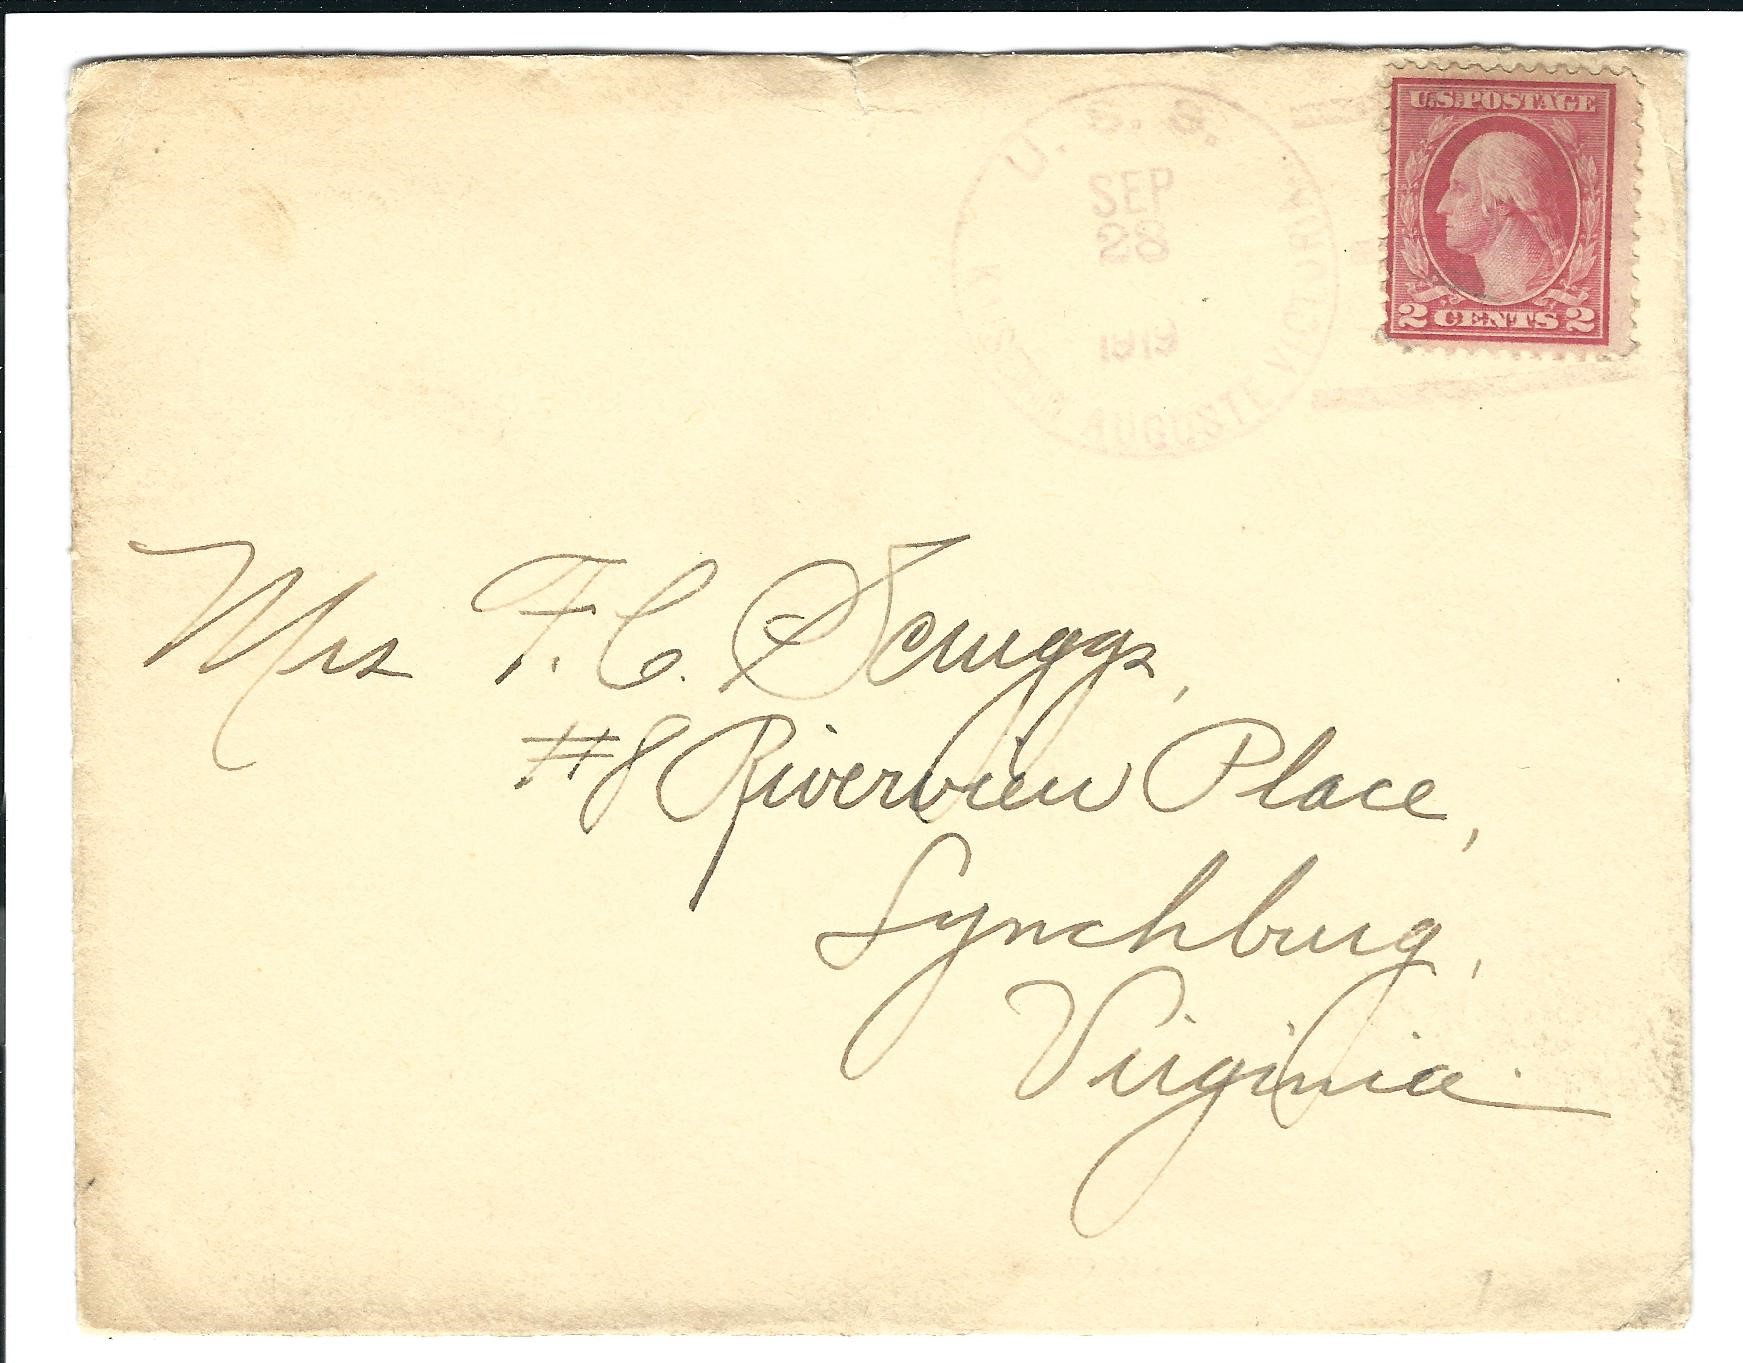 U. S. S.
SEP
28
1919
KAISERIN AUGUSTE VICTORIA
U.S. POSTAGE
2 CENTS 2
Mrs F. C. Scruggs,
#8 Riverview Place,
Lynchburg,
Virginia.